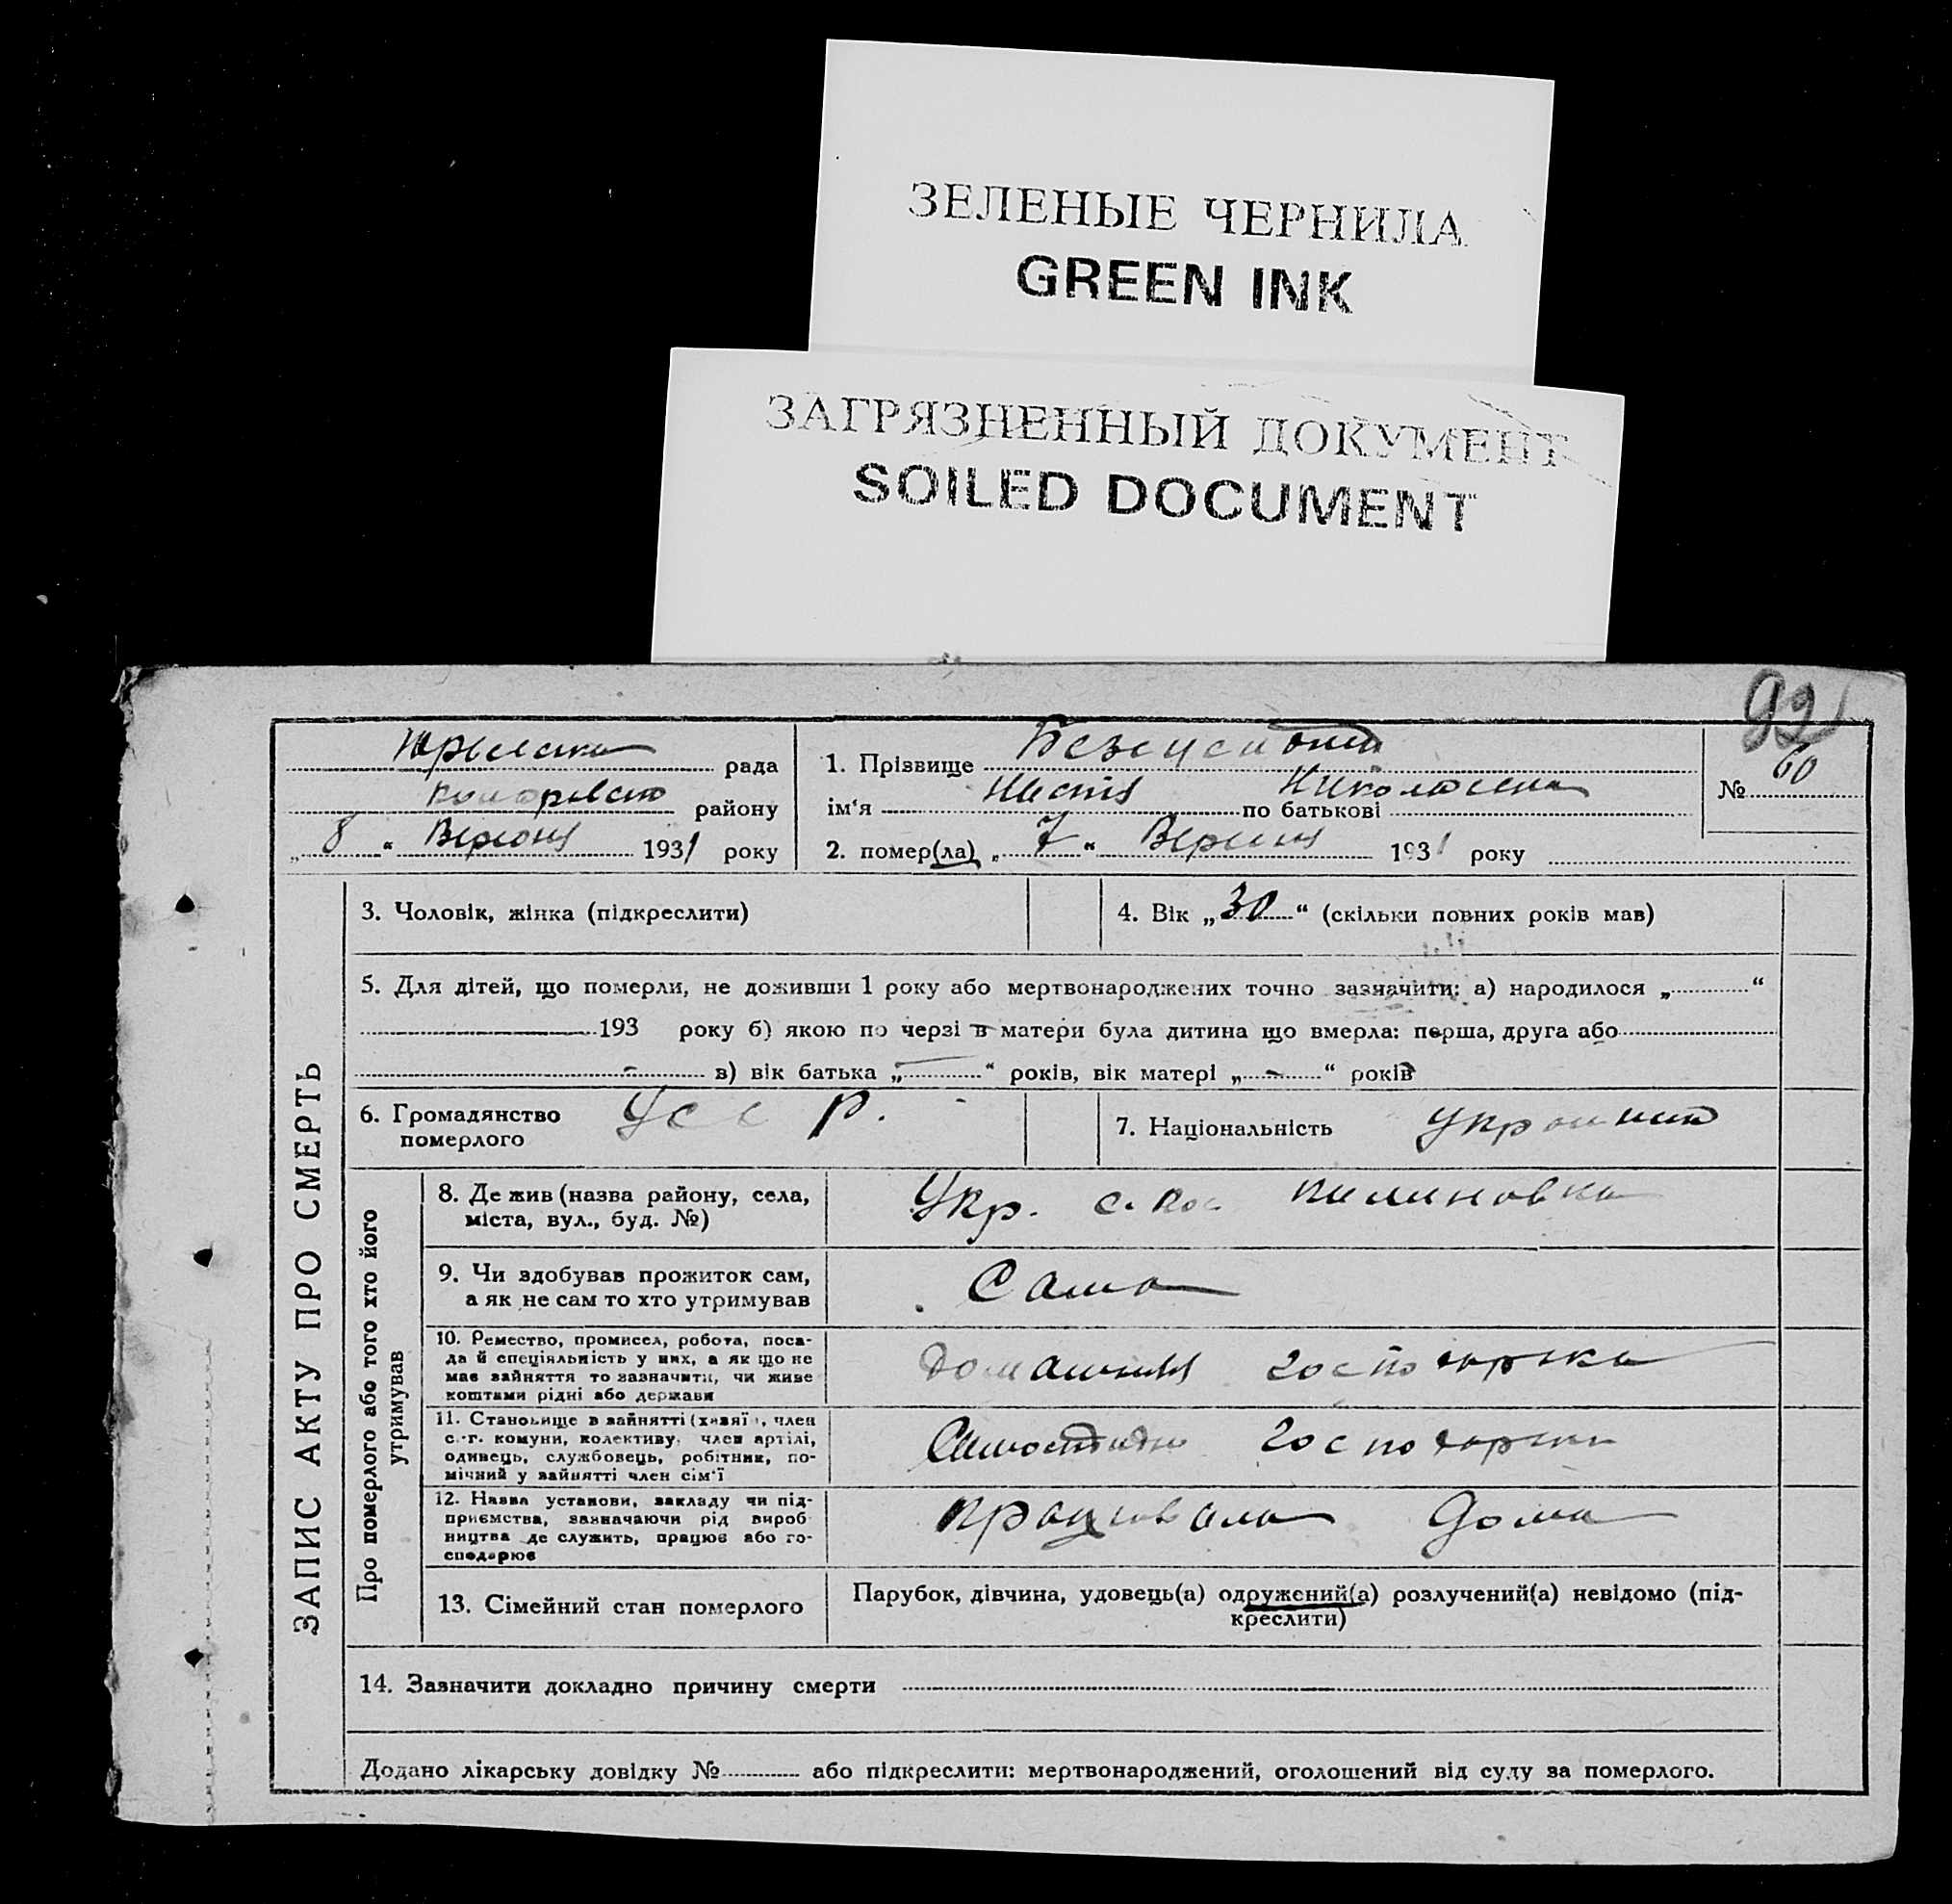 ЗЕЛЕНЫЕ ЧЕРНИЛА
GREEN INK
ЗАГРЯЗНЕННЫЙ ДОКУМЕНТ
SOILED DOCUMENT
92
рада
району
„ 8 “ Вересня 1931 року
1. Прізвище
ім‘я Настя по батькові
№ 60
2. помер(ла) „ 7 “ Вересня 1931 року
ЗАПИС АКТУ ПРО СМЕРТЬ
3. Чоловік, жінка (підкреслити)
4. Вік „ 30 “ (скільки повних років мав)
5. Для дітей, що померли, не доживши 1 року або мертвонароджених точно зазначити: а) народилося „ “
193 року б) якою по черзі в матери була дитина що вмерла: перша, друга або
в) вік батька „ “ років, вік матері „ “ років
6. Громадянство померлого УССР.
7. Національність
Про померлого або того хто його утримував
8. Де жив (назва району, села,
міста, вул., буд. №)
Укр.
9. Чи здобував прожиток сам,
а як не сам то хто утримував
Сама
10. Ремество, промисел, робота, поса-
да й спеціяльність у них, а як що не
має зайняття то зазначити, чи живе
коштами рідні або держави
Домашня господарка
11. Становище в зайнятті (хазяїн, член
с.-г. комуни, колективу, член артілі,
одивець, службовець, робітник, по-
мічний у зайнятті член сім'ї
господарка
12. Назва установи, закладу чи під-
приємства, зазначаючи рід вироб-
ництва де служить, працює або го-
сподарює
працювала дома
13. Сімейний стан померлого
Парубок, дівчина, удовець(а) одружений(а) розлучений(а) невідомо (під-
креслити)
14. Зазначити докладно причину смерти
Додано лікарську довідку № або підкреслити: мертвонароджений, оголошений від суду за померлого.